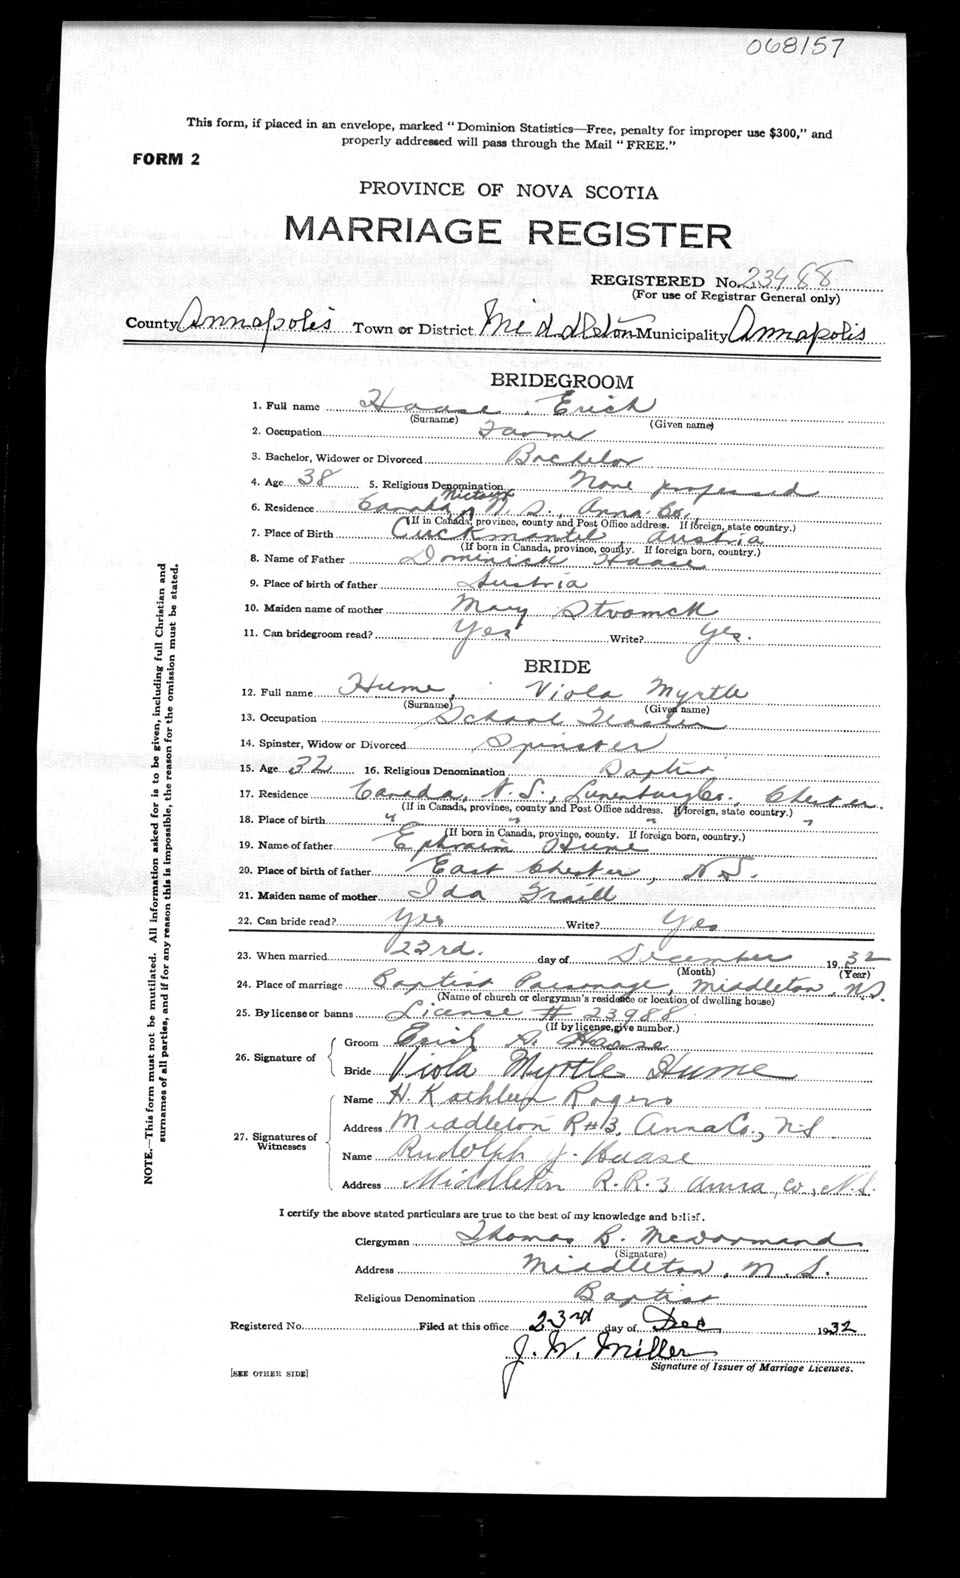 068157
This form, if placed in an envelope, marked "Dominion Statistics—Free, penalty for improper use $300," and
properly addressed will pass through the Mail "FREE."
FORM 2
PROVINCE OF NOVA SCOTIA
MARRIAGE REGISTER
REGISTERED No. 23988
(For use of Registrar General only)
County Annapolis Town or District Middleton Municipality Annapolis
BRIDEGROOM
1. Full name Haase, Erich
(Surname) (Given name)
2. Occupation Farmer
3. Bachelor, Widower or Divorced Bachelor
4. Age 38 5. Religious Denomination None professed
6. Residence Canada, Nictaux N. S., Anna. Co.
(If in Canada, province, county and Post Office address. If foreign, state country.)
7. Place of Birth Cuckmantel, Austria
(If born in Canada, province, county. If foreign born, country.)
8. Name of Father Dominick Haase
9. Place of birth of father Austria
10. Maiden name of mother Mary
11. Can bridegroom read? Yes Write? Yes.
BRIDE
12. Full name Hume, Viola Myrtle
(Surname) (Given name)
13. Occupation School Teacher
14. Spinster, Widow or Divorced Spinster
15. Age 32 16. Religious Denomination Baptist
17. Residence Canada, N.S., Lunenburg Co., Chester.
(If in Canada, province, county and Post Office address. If foreign, state country.)
18. Place of birth " " " "
(If born in Canada, province, county. If foreign born, country.)
19. Name of father Ephraim Hume
20. Place of birth of father East Chester, N.S.
21. Maiden name of mother Ida Fraill
22. Can bride read? Yes Write? Yes
23. When married 23rd. day of December 1932
(Month) (Year)
24. Place of marriage Baptist Parsonage, Middleton, N.S.
(Name of church or clergyman's residence or location of dwelling house)
25. By license or banns License # 23988
(If by license, give number.)
26. Signature of Groom Erich A. Haase
Bride Viola Myrtle Hume
27. Signatures of Witnesses Name H. Kathleen Rogers
Address Middleton R#3, Anna Co., N.S.
Name Rudolph J. Haase
Address Middleton R.R.3 Anna, Co, N.S.
I certify the above stated particulars are true to the best of my knowledge and belief.
Clergyman Thomas B. McDormand
(Signature)
Address Middleton, N.S.
Religious Denomination Baptist
Registered No. Filed at this office 23rd day of Dec. 1932
J. W. Miller
Signature of Issuer of Marriage Licenses.
[SEE OTHER SIDE]
NOTE.—This form must not be mutilated. All information asked for is to be given, including full Christian and
surnames of all parties, and if for any reason this is impossible, the reason for the omission must be stated.